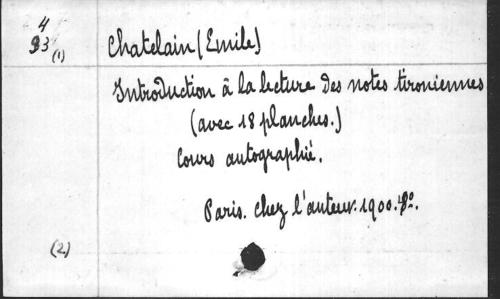 4
93 (1)
Chatelain (Emile)
Introduction à la lecture des notes tironiennes
(avec 18 planches.)
Cours autographié.
Paris. chez l'auteur. 1900. 8°.
(2)